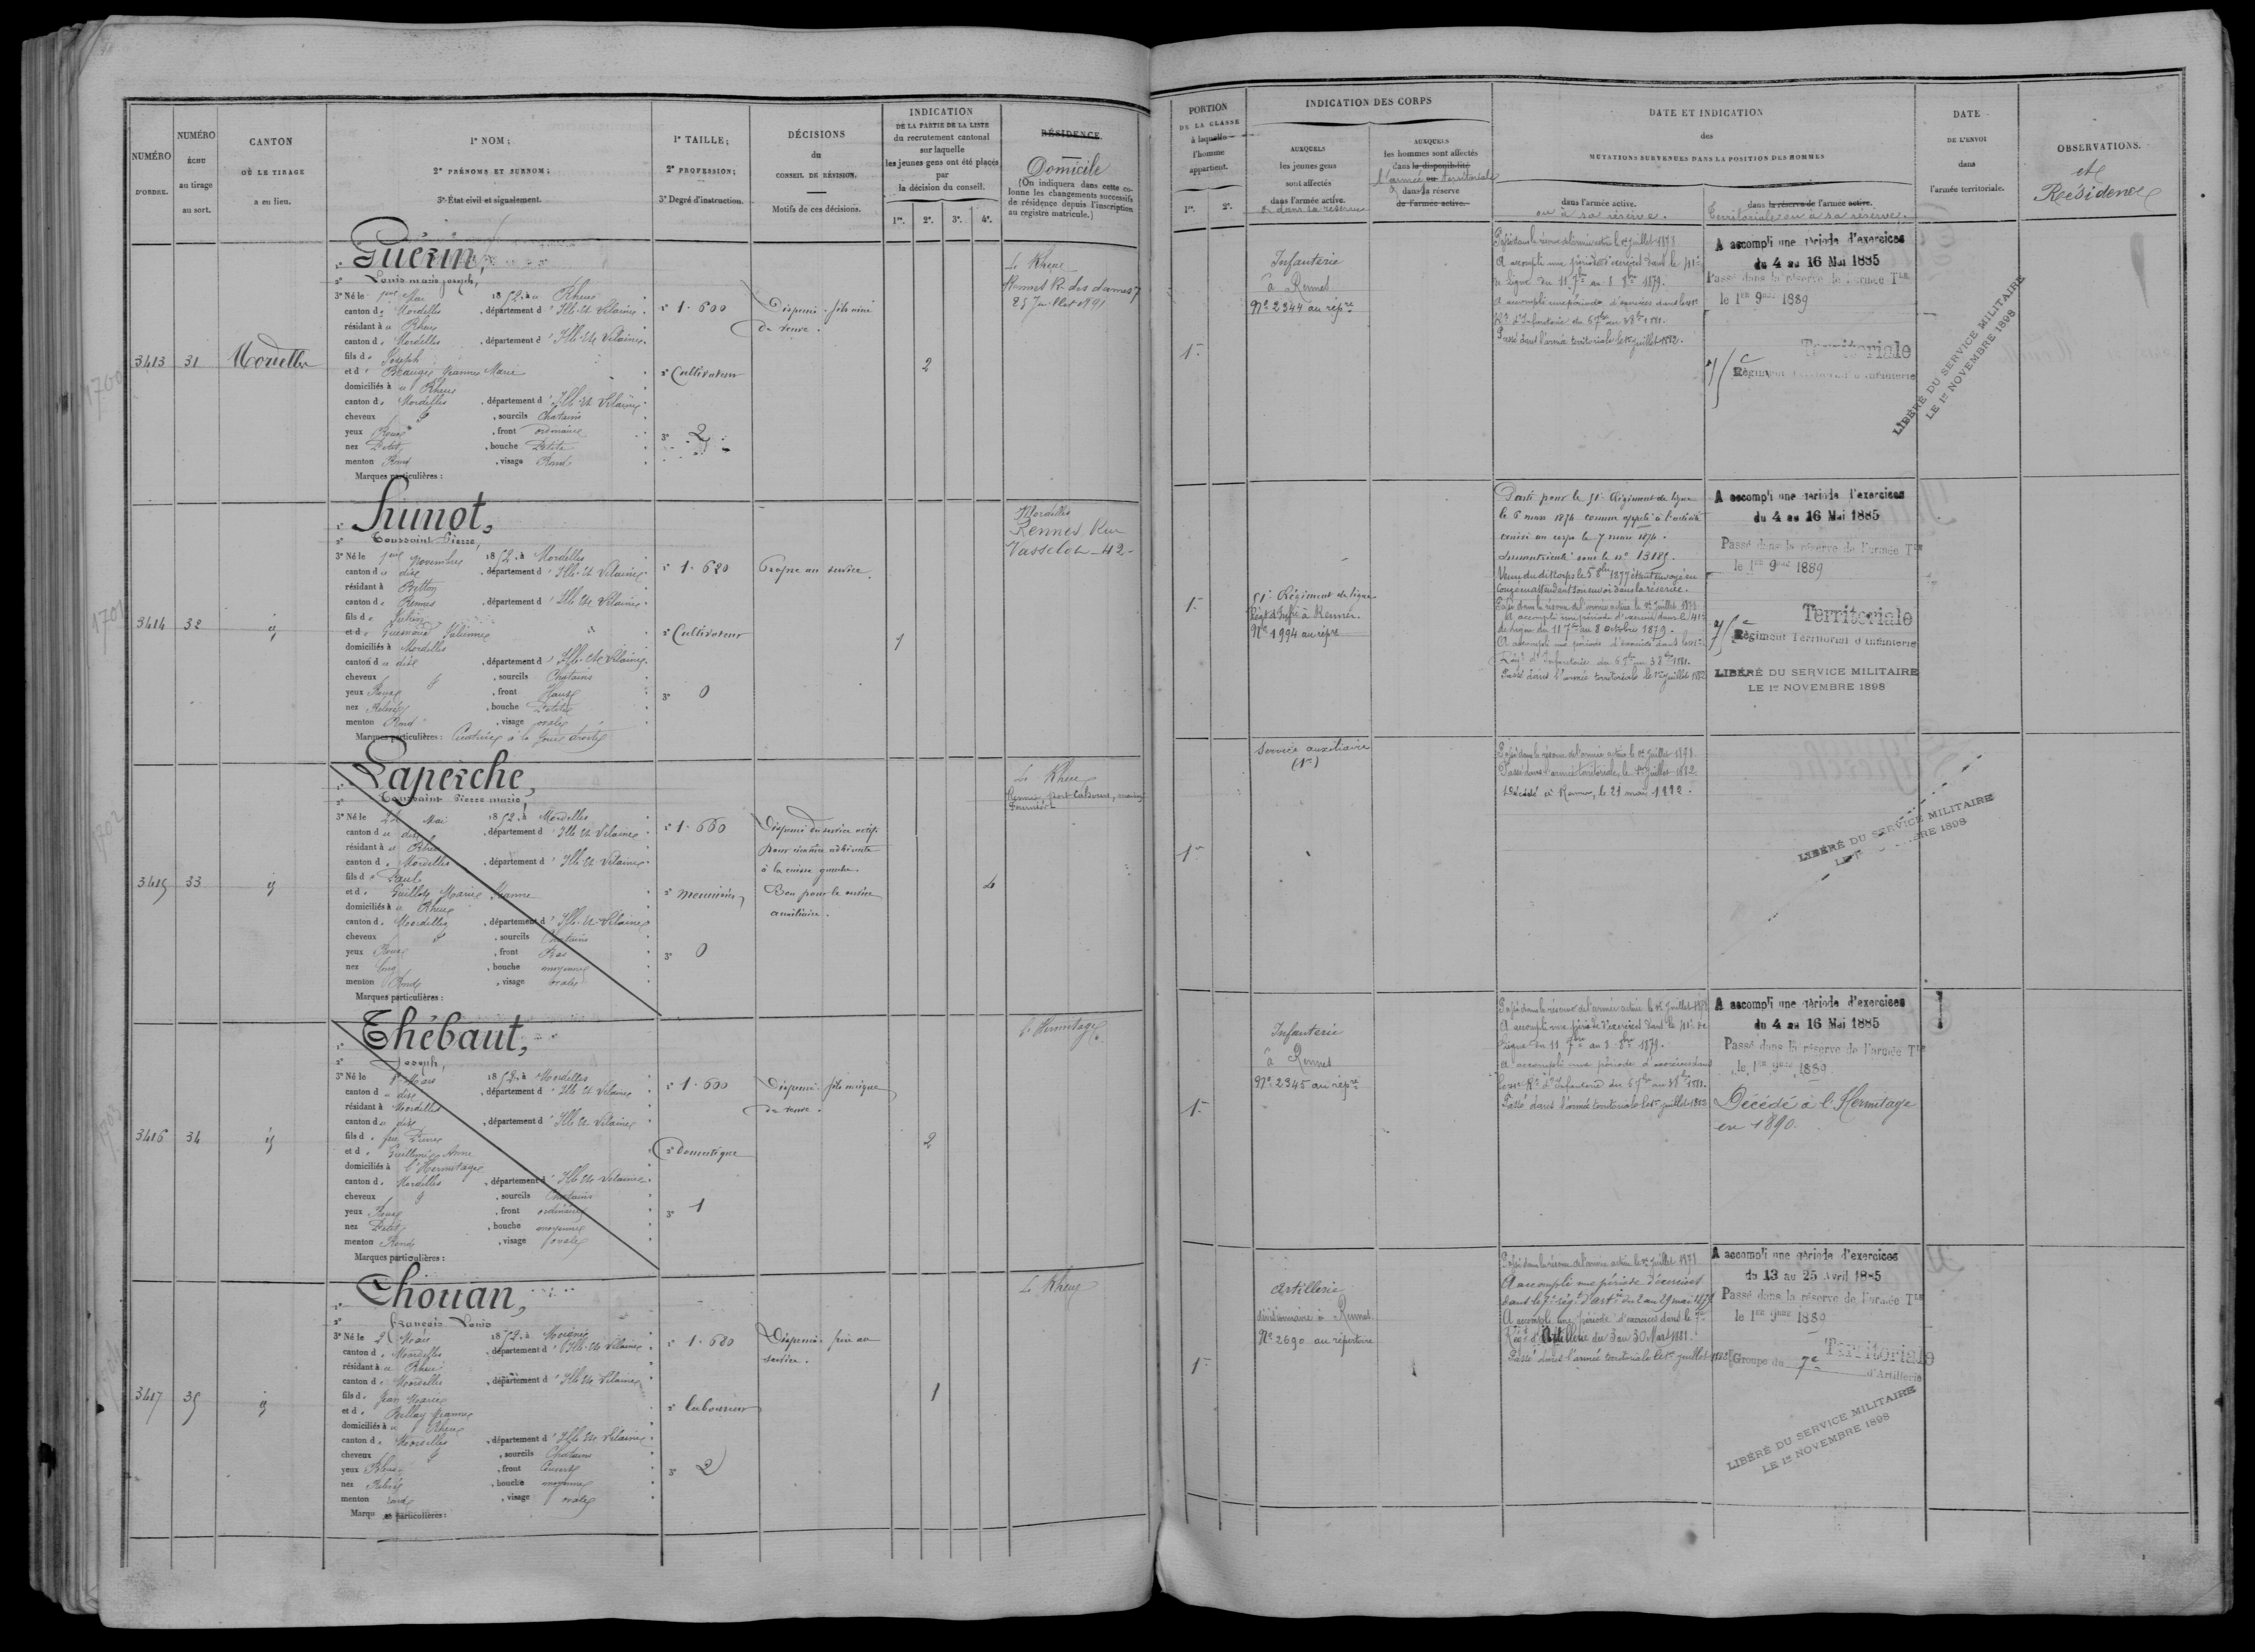 NUMÉRO
D'ORDRE.
NUMÉRO
ÉCHU
au tirage
au sort.
CANTON
OÙ LE TIRAGE
a eu lieu.
1° NOM;
2° PRÉNOMS ET SURNOM;
3° État civil et signalement.
1° TAILLE;
2° PROFESSION;
3° Degré d'instruction.
DÉCISIONS
du
CONSEIL DE RÉVISION.
Motifs de ces décisions.
INDICATION
DE LA PARTIE DE LA LISTE
du recrutement cantonal
sur laquelle
les jeunes gens ont été placés
par
la décision du conseil.
1re. 2e. 3e. 4e.
RÉSIDENCE
Domicile
(On indiquera dans cette co-
lonne les changements successifs
de résidence depuis l'inscription
au registre matricule.)
3413 31 Mordelles
Guérin,
2° Louis marie joseph,
3° Né le 1er Mai 1852, à Rheu
canton de Mordelles, département d'Ille-et-Vilaine
résidant à Rheu
canton de Mordelles, département d'Ille-et-Vilaine
fils de Joseph
et d Beaugée Jeanne Marie
domiciliés à Rheu
canton de Mordelles, département d'Ille-et-Vilaine
cheveux , sourcils Chatains
yeux Roux, front ordinaire
nez Petit, bouche Petite
menton Rond, visage Rond
Marques particulières :
1° 1.600
2° Cultivateur
3° 2
Dispensé - fils aîné
de veuve.
2
Le Rheu
Rennes R. des dames 7
25 Juillet 1891
3414 32 id
Hunot,
2° Toussaint Pierre,
3° Né le 1er Novembre 1852, à Mordelles
canton du dit, département d'Ille-et-Vilaine
résidant à Betton
canton de Rennes, département d'Ille-et-Vilaine
fils de Julien
et de Guesnand Julienne
domiciliés à Mordelles
canton du dit, département d'Ille-et-Vilaine
cheveux , sourcils Chatains
yeux Roux, front Haut
nez Relevé, bouche Petite
menton Rond, visage ovale
Marques particulières : Cicatrice à la joue droite
1° 1.680
2° Cultivateur
3° 0
Propre au service.
1
Mordelles
Rennes, Rue
Vasselot - 42 -
3415 33 id
Laperche,
2° Toussaint Pierre marie,
3° Né le 22 Mai 1852, à Mordelles
canton du dit, département d'Ille-et-Vilaine
résidant à Rheu
canton de Mordelles, département d'Ille-et-Vilaine
fils de Paul
et de Guillois Marie Jeanne
domiciliés à Rheu
canton de Mordelles, département d'Ille-et-Vilaine
cheveux , sourcils Chatains
yeux Roux, front Bas
nez long, bouche moyenne
menton Rond, visage ovale
Marques particulières :
1° 1.660
2° menuisier
3° 0
Dispensé du service actif
pour cicatrice adhérente
à la cuisse gauche.
Bon pour le service
auxiliaire.
4
Le Rheu
3416 34 id
Thébaut,
2° Joseph,
3° Né le 1er Mars 1852, à Mordelles
canton du dit, département d'Ille-et-Vilaine
résidant à Mordelles
canton du dit, département d'Ille-et-Vilaine
fils de feu Pierre
et de Guillemée Anne
domiciliés à l'Hermitage
canton de Mordelles, département d'Ille-et-Vilaine
cheveux , sourcils Chatains
yeux Roux, front ordinaire
nez Petit, bouche moyenne
menton Rond, visage ovale
Marques particulières :
1° 1.600
2° Domestique
3° 1
Dispensé - fils unique
de veuve.
2
L'Hermitage
3417 35 id
Thouan,
2° François Louis
3° Né le 2 Mars 1852, à Moigné
canton de Mordelles, département d'Ille-et-Vilaine
résidant à Rheu
canton de Mordelles, département d'Ille-et-Vilaine
fils de Jean Marie
et de Bellay Jeanne
domiciliés à Rheu
canton de Mordelles, département d'Ille-et-Vilaine
cheveux , sourcils Chatains
yeux Bleus, front Couvert
nez Relevé, bouche moyenne
menton rond, visage ovale
Marques particulières :
1° 1.680
2° laboureur
3° 2
Dispensé - frère au
service.
1
Le Rheu
PORTION
DE LA CLASSE
à laquelle
l'homme
appartient.
1re. 2e.
INDICATION DES CORPS
AUXQUELS
les jeunes gens
sont affectés
dans l'armée active.
ou dans sa réserve
AUXQUELS
les hommes sont affectés
dans la disponibilité
l'armée ou territoriale
dans la réserve
de l'armée active.
DATE ET INDICATION
des
MUTATIONS SURVENUES DANS LA POSITION DES HOMMES
dans l'armée active.
ou à sa réserve.
dans la réserve de l'armée active.
Territoriale ou à sa réserve.
DATE
DE L'ENVOI
dans
l'armée territoriale.
OBSERVATIONS.
et
Résidence
1re
Infanterie
à Rennes
N° 2344 au répre
Passé dans la réserve de l'armée active le 1er juillet 1878
A accompli une période d'exercices dans le 41e
de Ligne du 11 7bre au 8 8bre 1879.
A accompli une période d'exercices dans le 41e
Rt d'Infanterie du 6 7bre au 3 8bre 1881.
Passé dans l'armée territoriale le 1er juillet 1882.
A accompli une période d'exercices
du 4 au 16 Mai 1885
Passé dans la réserve de l'armée Tle
le 1er 9bre 1889
Territoriale
75e Régiment Territorial d'Infanterie
LIBÉRÉ DU SERVICE MILITAIRE
LE 1er NOVEMBRE 1898
1re
51e Régiment de ligne
Régt d'Infie à Rennes
N° 1994 au répre
Parti pour le 51e Régiment de ligne
le 6 mars 1874 comme appelé à l'activité
arrivé au corps le 7 mars 1874.
Immatriculé sous le n° 13185.
Venu du dit corps le 5 8bre 1877 étant envoyé en
congé en attendant son envoi dans la réserve.
Passé dans la réserve de l'armée active le 1er juillet 1878
A accompli une période d'exercices dans le 41e
de ligne du 11 7bre au 8 octobre 1879.
A accompli une période d'exercices dans le 41e
Régt d'Infanterie du 6 7bre au 3 8bre 1881.
Passé dans l'armée territoriale le 1er juillet 1882
A accompli une période d'exercices
du 4 au 16 Mai 1885
Passé dans la réserve de l'armée Tle
le 1er 9bre 1889
Territoriale
75e Régiment Territorial d'Infanterie
LIBÉRÉ DU SERVICE MILITAIRE
LE 1er NOVEMBRE 1898
1re
Service auxiliaire
(1re)
Passé dans la réserve de l'armée active le 1er juillet 1878.
Passé dans l'armée territoriale le 1er juillet 1882.
Décédé à Rennes, le 21 mai 1892.
LIBÉRÉ DU SERVICE MILITAIRE
LE 1er NOVEMBRE 1898
1re
Infanterie
à Rennes
N° 2345 au répre
Passé dans la réserve de l'armée active le 1er juillet 1878
A accompli une période d'exercices dans le 41e de
Ligne du 11 7bre au 8 8bre 1879.
A accompli une période d'exercices dans
le 41e Rt d'Infanterie du 6 7bre au 3 8bre 1881.
Passé dans l'armée territoriale le 1er juillet 1882
A accompli une période d'exercices
du 4 au 16 Mai 1885
Passé dans la réserve de l'armée Tle
le 1er 9bre 1889
Décédé à l'Hermitage
en 1890.
1re
Artillerie
divisionnaire à Rennes
N° 2690 au répertoire
Passé dans la réserve de l'armée active le 1er juillet 1878
A accompli une période d'exercices
dans le 7e régt d'artie du 2 au 29 mai 1879
A accompli une période d'exercices dans le 7e
Régt d'Artillerie du 3 au 30 Mars 1881.
Passé dans l'armée territoriale le 1er juillet 1882
A accompli une période d'exercices
du 13 au 25 Avril 1885
Passé dans la réserve de l'armée Tle
le 1er 9bre 1889
Territoriale
Groupe du 7e d'Artillerie
LIBÉRÉ DU SERVICE MILITAIRE
LE 1er NOVEMBRE 1898